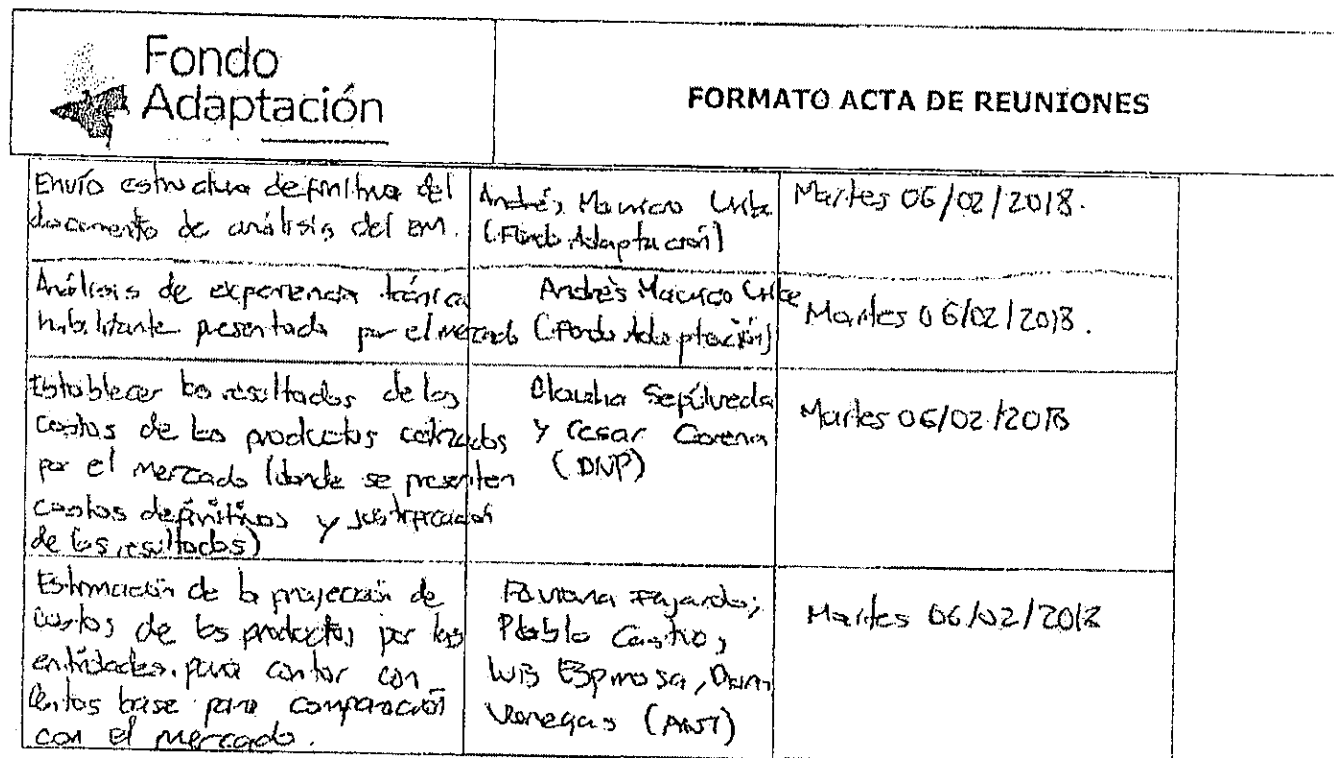 Fondo
Adaptación
FORMATO ACTA DE REUNIONES
Envío estructura definitiva del
documento de análisis del EM.
Andrés Mauricio Uribe
(Fondo Adaptación)
Martes 06/02/2018.
Análisis de experiencia técnica
habilitante presentada por el mercado
Andrés Mauricio Uribe
(Fondo Adaptación)
Martes 06/02/2018.
Establecer los resultados de los
costos de los productos cotizados
por el mercado (donde se presenten
costos definitivos y justificación
de los resultados)
Claudia Sepúlveda
y Cesar
(DNP)
Martes 06/02/2018
Estimación de la proyección de
costos de los productos por las
entidades, para contar con
base para comparación
con el mercado.
Fajardo,
Pablo Castro,
Luis Espinosa,
Venegas (ANT)
Martes 06/02/2018